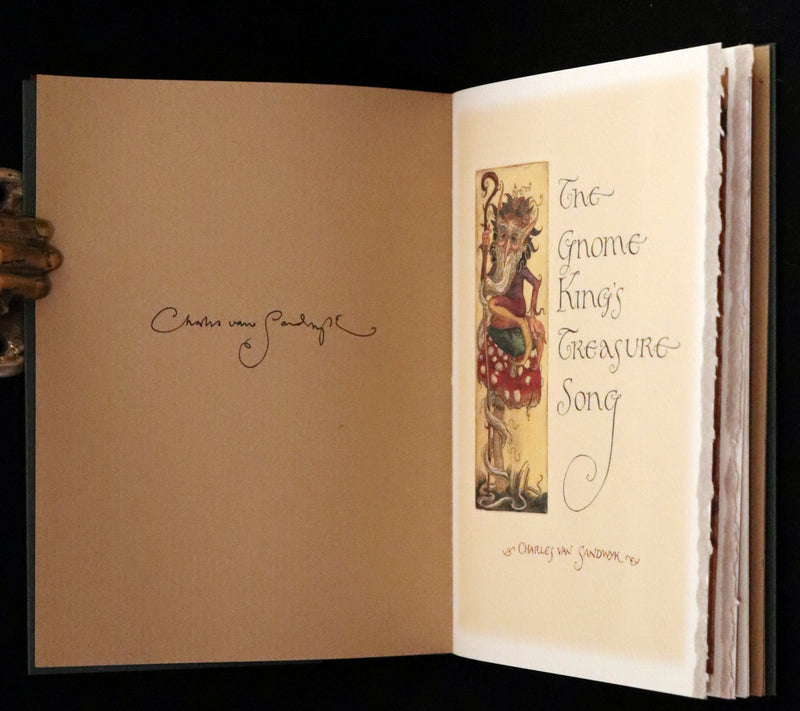 Charles van Sandwyk
The
Gnome
King's
Treasure
Song
Charles van Sandwyk